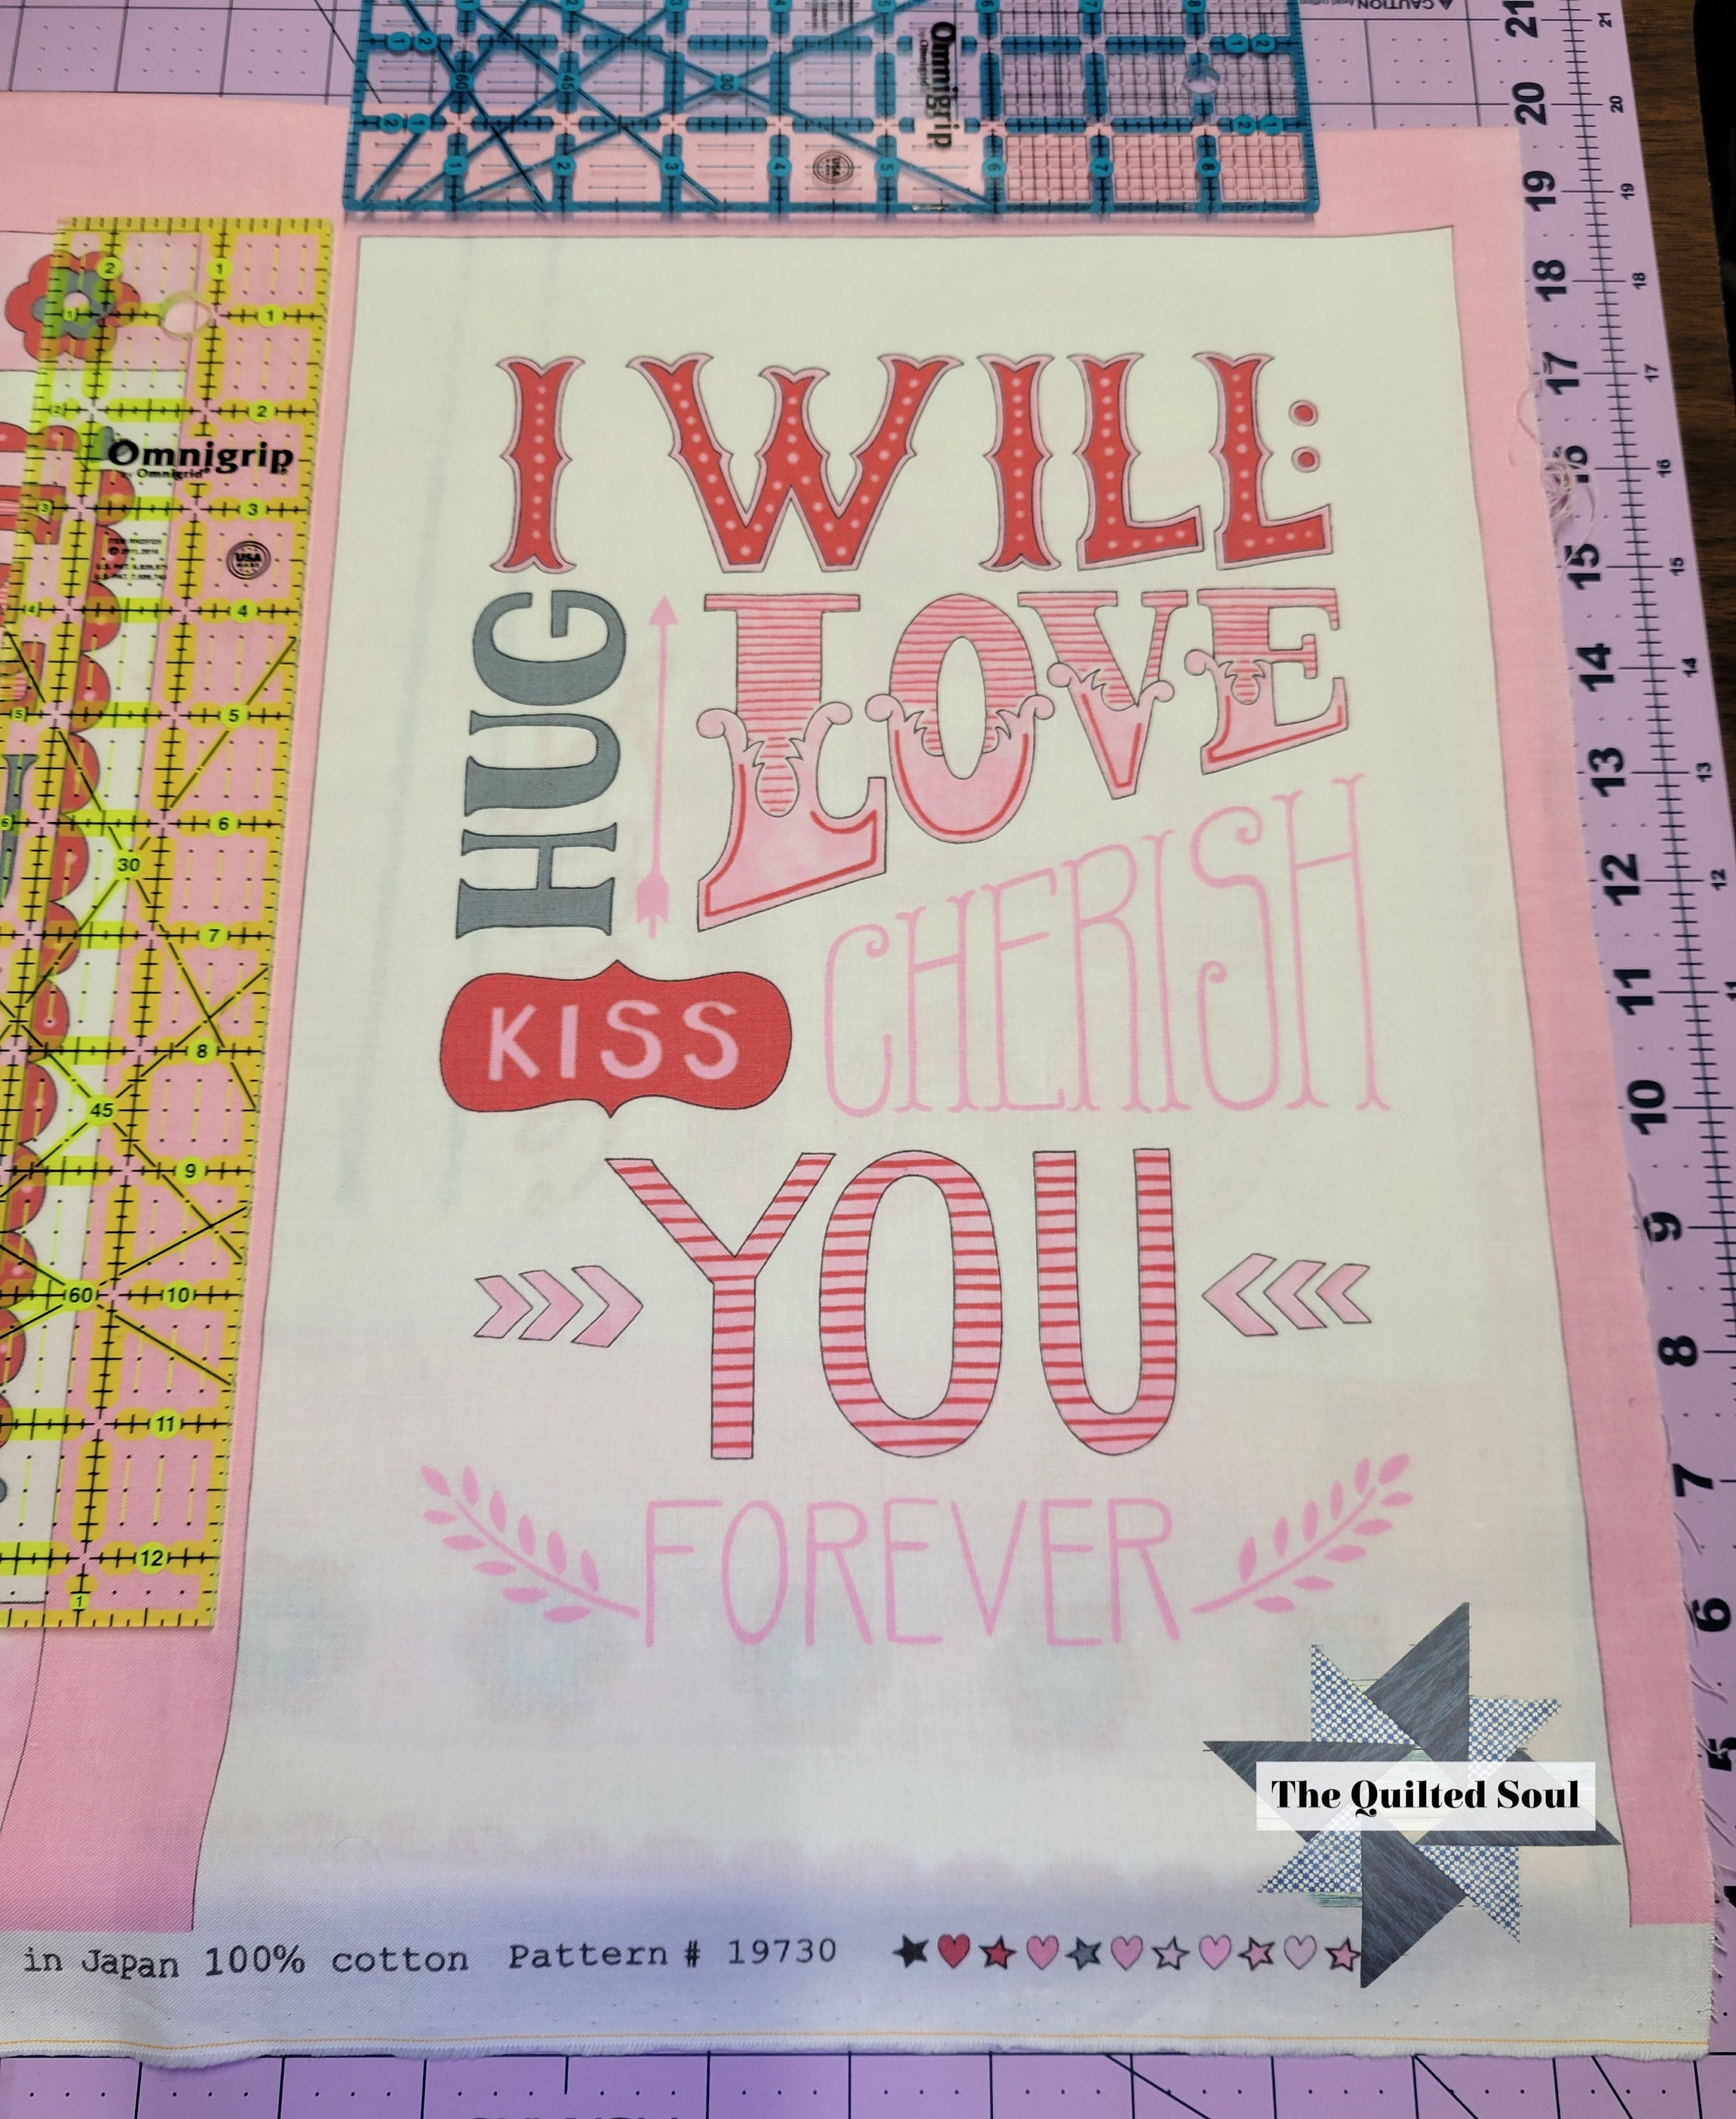 CAUTION
Omnigrip
Omnigrip
by Omnigrid
I WILL:
HUG
LOVE
CHERISH
KISS
YOU
FOREVER
The Quilted Soul
in Japan 100% cotton Pattern # 19730
1 2 3 4 5 6 7 8
1 2 3 4 5 6 7 8 9 10 11 12
30
45
60
21
20
19
18
17
16
15
14
13
12
11
10
9
8
7
6
5